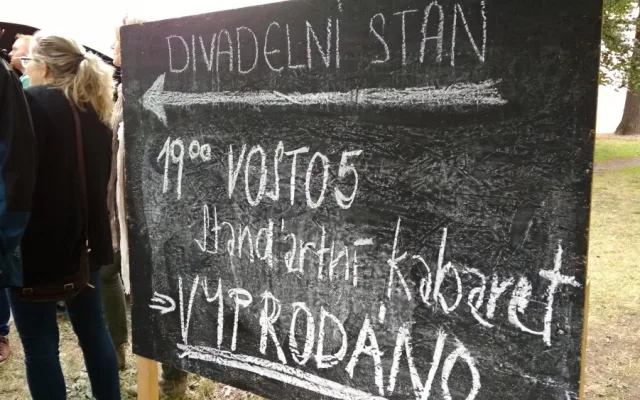 DIVADELNÍ STAN
19⁰⁰ VOSTO5
Stand'artní kabaret
⇒ VYPRODÁNO